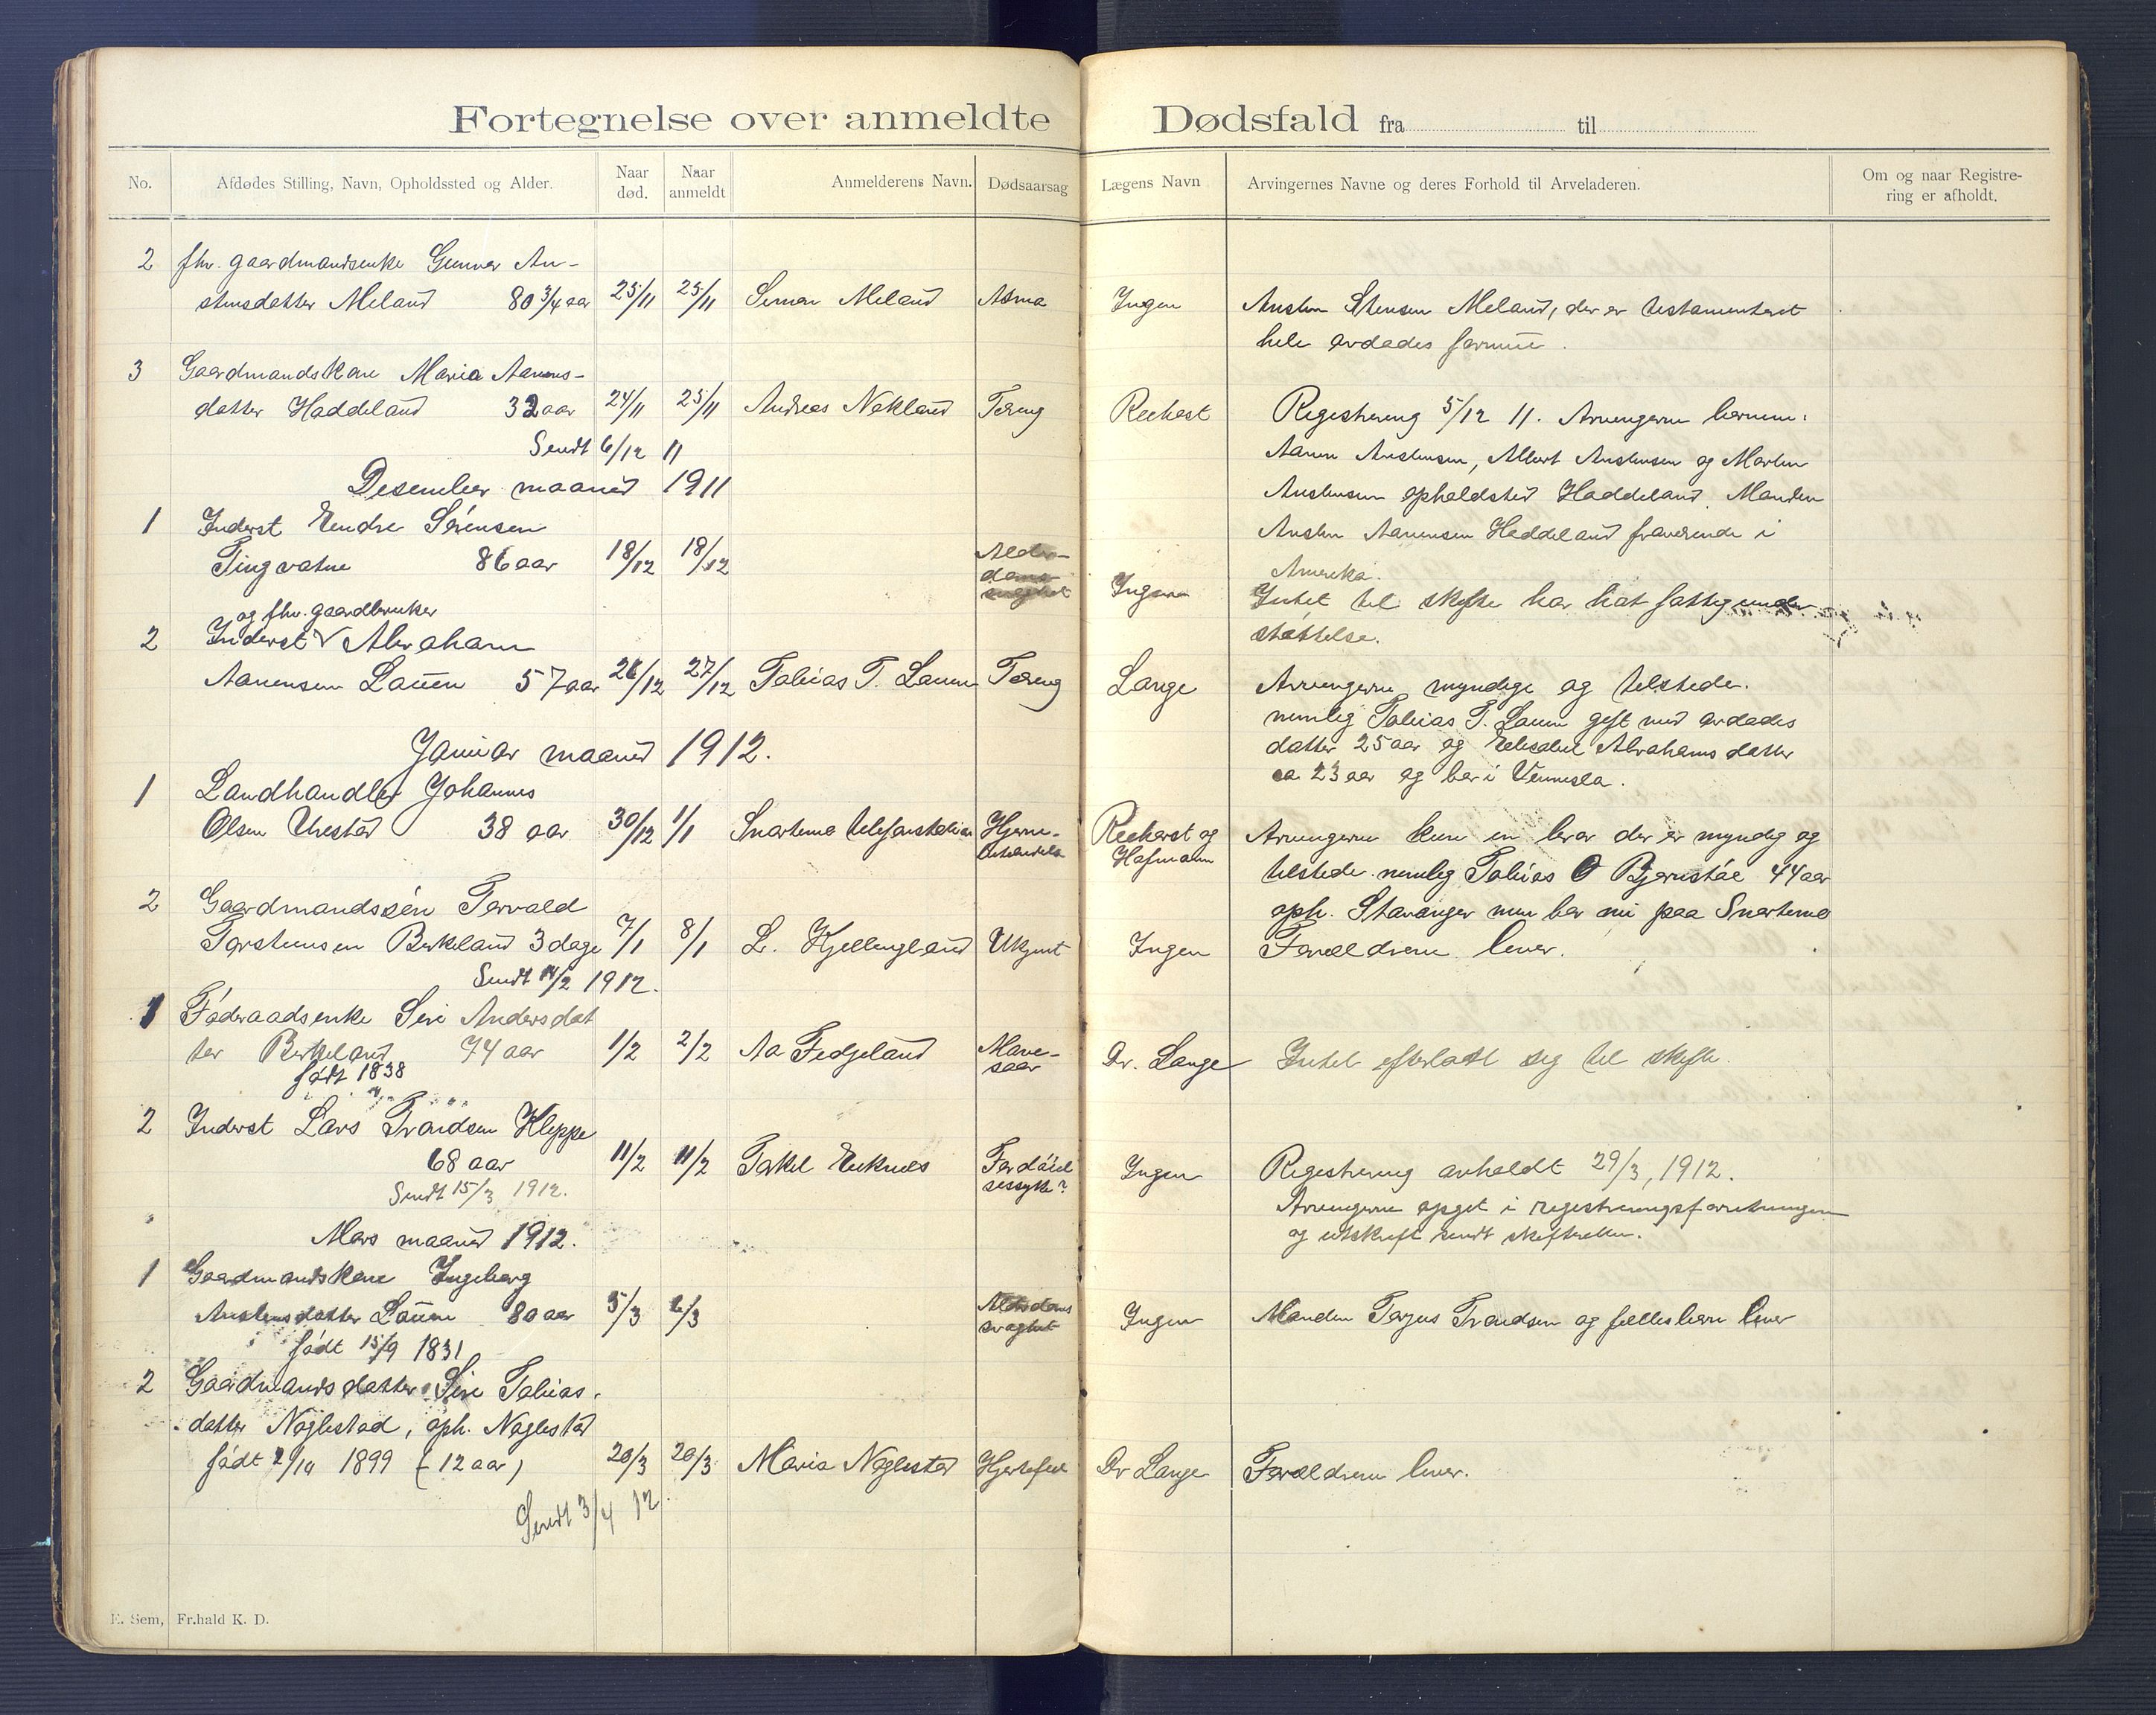 Fortegnelse over anmeldte Dødsfald fra til
No.
Afdødes Stilling, Navn, Opholdssted og Alder.
Naar død.
Naar anmeldt
Anmelderens Navn.
Dødsaarsag
Lægens Navn
Arvingernes Navne og deres Forhold til Arveladeren.
Om og naar Registre-
ring er afholdt.
2 fhv. gaardmandsenke Gunner An-
stensdatter Meland 80 3/4 aar 25/11 25/11 Simon Meland Asma Ingen Ansten Stensen Meland, der er testamenteret
hele avdødes formue.
3 Gaardmandskone Maria Aanens-
datter Haddeland 32 aar 24/11 25/11 Andreas Nekland Tæring Reekest Registrering 5/12 11. Arvingerne børnene:
Sendt 6/12 11 Aanen Anstensen, Albert Anstensen og Marten
Desember maaned 1911 Anstensen opholdsted Haddeland. Manden
1 Inderst Endre Sørensen Ansten Aanensen Haddeland fraværende i
Tingvatne 86 aar 18/12 18/12 Alder-
doms- Amerika.
svaghet Ingen Intet til skifte har hat fattigunder
støttelse.
og fhv. gaardbruker
2 Inderst Abraham
Aanensen Lauen 57 aar 26/12 27/12 Tobias T. Lauen Tæring Lange Arvingerne myndige og tilstede.
nemlig Tobias T. Lauen gift med avdødes
datter 25 aar og Elisabet Abrahamsdatter
ca 23 aar og bor i Vennesla.
Januar maaned 1912.
1 Landhandler Johannes
Olsen Urestad 38 aar 30/12 1/1 Snartemo telefonstation Hjerne-
betændelse Reekest og
Hofmann Arvingerne kun en bror der er myndig og
tilstede nemlig Tobias O Bjørnstøl 44 aar
oph. Stavanger men bor nu paa Snartemo
2 Gaardmandssøn Torvald
Torstensen Birkeland 3 dage 7/1 8/1 L. Kjellingland Ukjent Ingen Forældrene lever.
Sendt 14/2 1912.
1 Føderaadsenke Siri Andersdat
ter Birkeland 74 aar 1/2 2/2 Aa Fedjeland Mave-
saar Dr. Lange Intet efterlatt sig til skifte.
født 1838
2 Inderst Lars Trondsen Kleppe
68 aar 11/2 11/2 Torkel Eiknes Fordøiel
sessyke? Ingen Registrering avholdt 29/3, 1912.
Sendt 15/3 1912. Arvingerne opget i registreringsforretningen
og utskrift sendt skifteretten.
Mars maaned 1912.
1 Gaardmandskone Ingeborg
Anstensdatter Lauen 80 aar 5/3 6/3 Alderdoms
svaghet Ingen Manden Tarjus Trondsen og fællesbørn lever
født 15/9 1831
2 Gaardmandsdatter Siri Tobias-
datter Noglestad, oph. Noglestad
født 2/10 1899 (12 aar) 20/3 20/3 Maria Noglestad Hjertefeil Dr Lange Forældrene lever.
Sendt 3/4 12.
E. Sem, Fr.hald K. D.